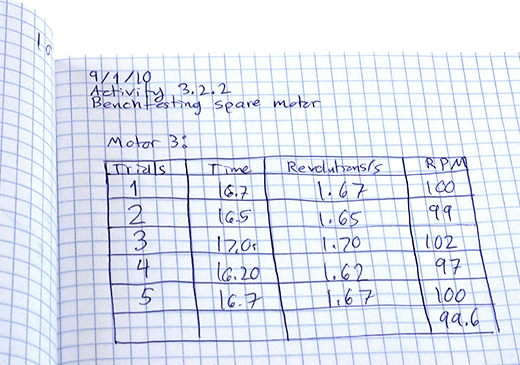 10
9/1/10
Activity 3.2.2
Benchtesting spare motor
Motor 3:
Trials Time Revolutions/s RPM
1 16.7 1.67 100
2 16.5 1.65 99
3 17.0s 1.70 102
4 16.20 1.62 97
5 16.7 1.67 100
99.6